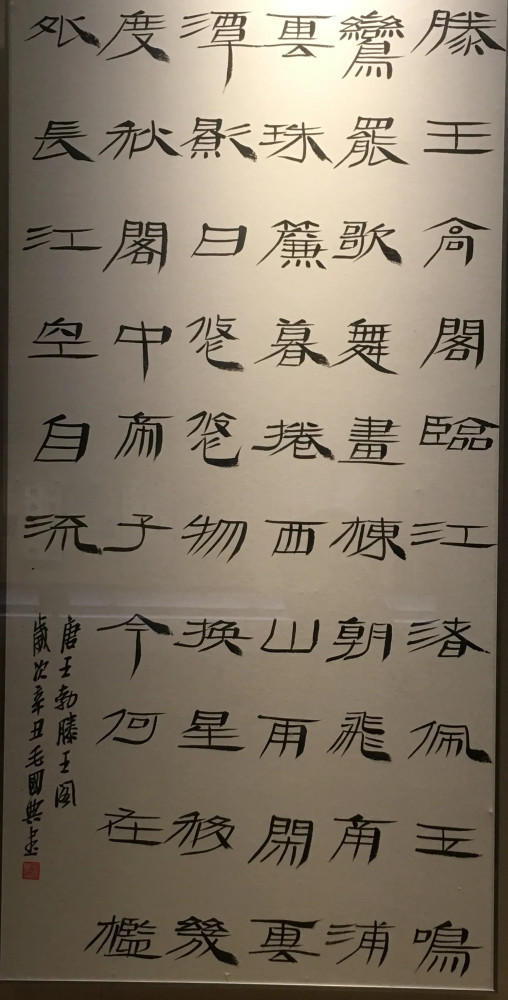 滕王高閣臨江渚佩玉鳴
鸞罷歌舞畫棟朝飛南浦
雲珠簾暮捲西山雨閑雲
潭影日悠悠物換星移幾
度秋閣中帝子今何在檻
外長江空自流
唐王勃滕王阁
歲次辛丑毛國典書